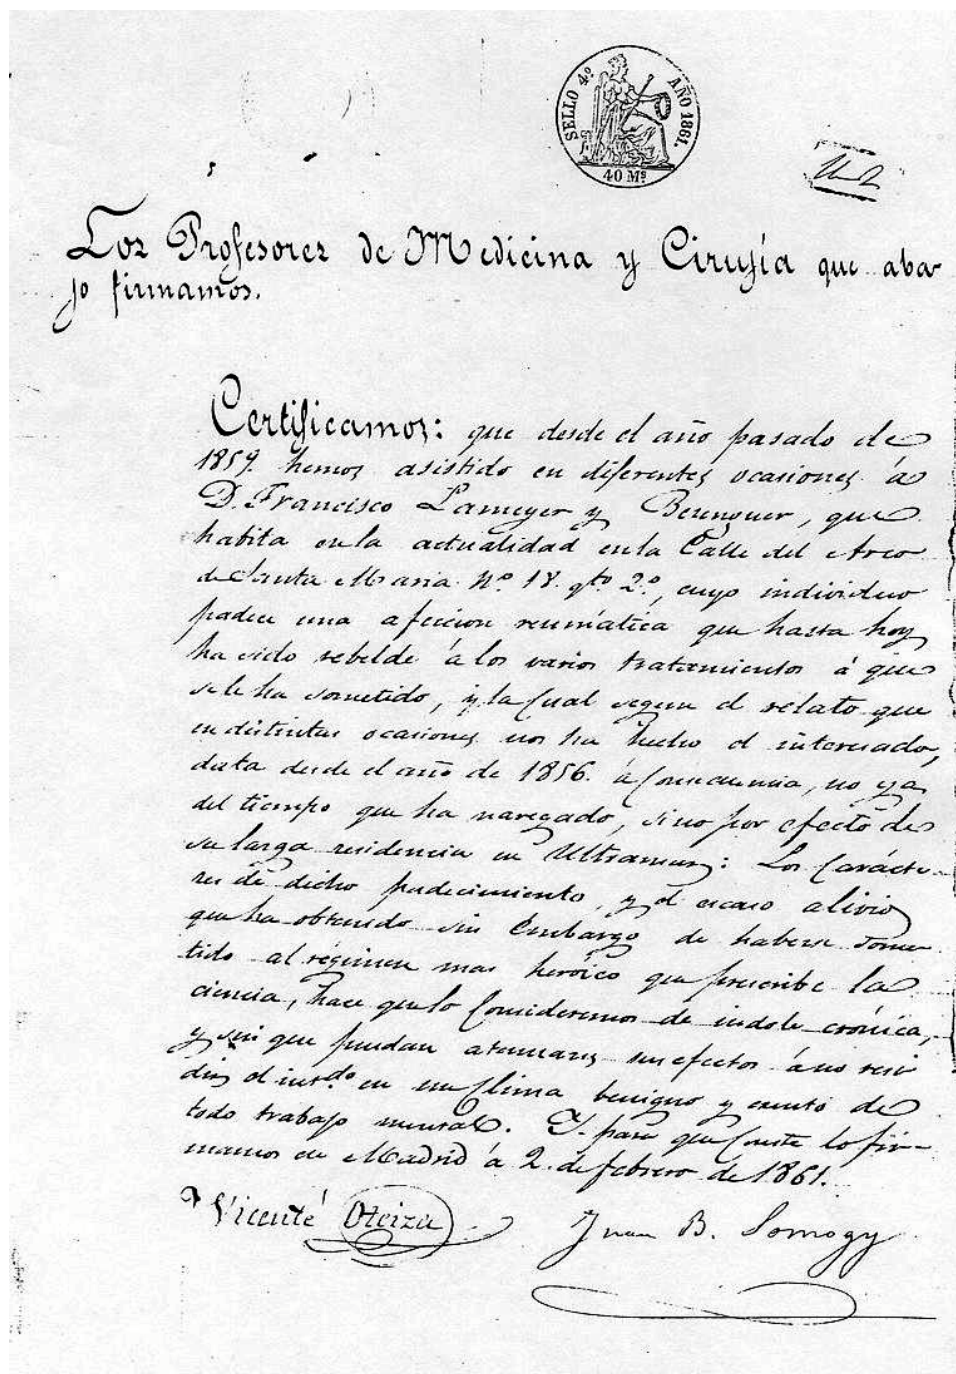 SELLO 4º AÑO 1861.
40 Ms
Los Profesores de Medicina y Cirujía que aba-
jo firmamos.
Certificamos: que desde el año pasado de
1859. hemos asistido en diferentes ocasiones á
D. Francisco Lameyer y Berenguer, que
habita en la actualidad en la Calle del Arco
de Santa Maria Nº 18. qto 2º, cuyo individuo
padece una afeccion reumática que hasta hoy
ha sido rebelde á los varios tratamientos á que
se le ha sometido, y la cual segun el relato que
en distintas ocasiones nos ha hecho el interesado,
data desde el año de 1856. á consecuencia, no ya
del tiempo que ha navegado, sino por efecto de
su larga residencia en Ultramar: Los carácte-
res de dicho padecimiento, y el escaso alivio
que ha obtenido sin embargo de haberse some-
tido al régimen mas heróico que prescribe la
ciencia, hace que lo consideremos de indole crónica,
y sin que puedan atenuarse sus efectos á no resi
dir el intdo en un clima benigno y exento de
todo trabajo mental. Y para que conste lo fir-
mamos en Madrid á 2. de febrero de 1861.
Vicente Oteiza Juan B. Somogy